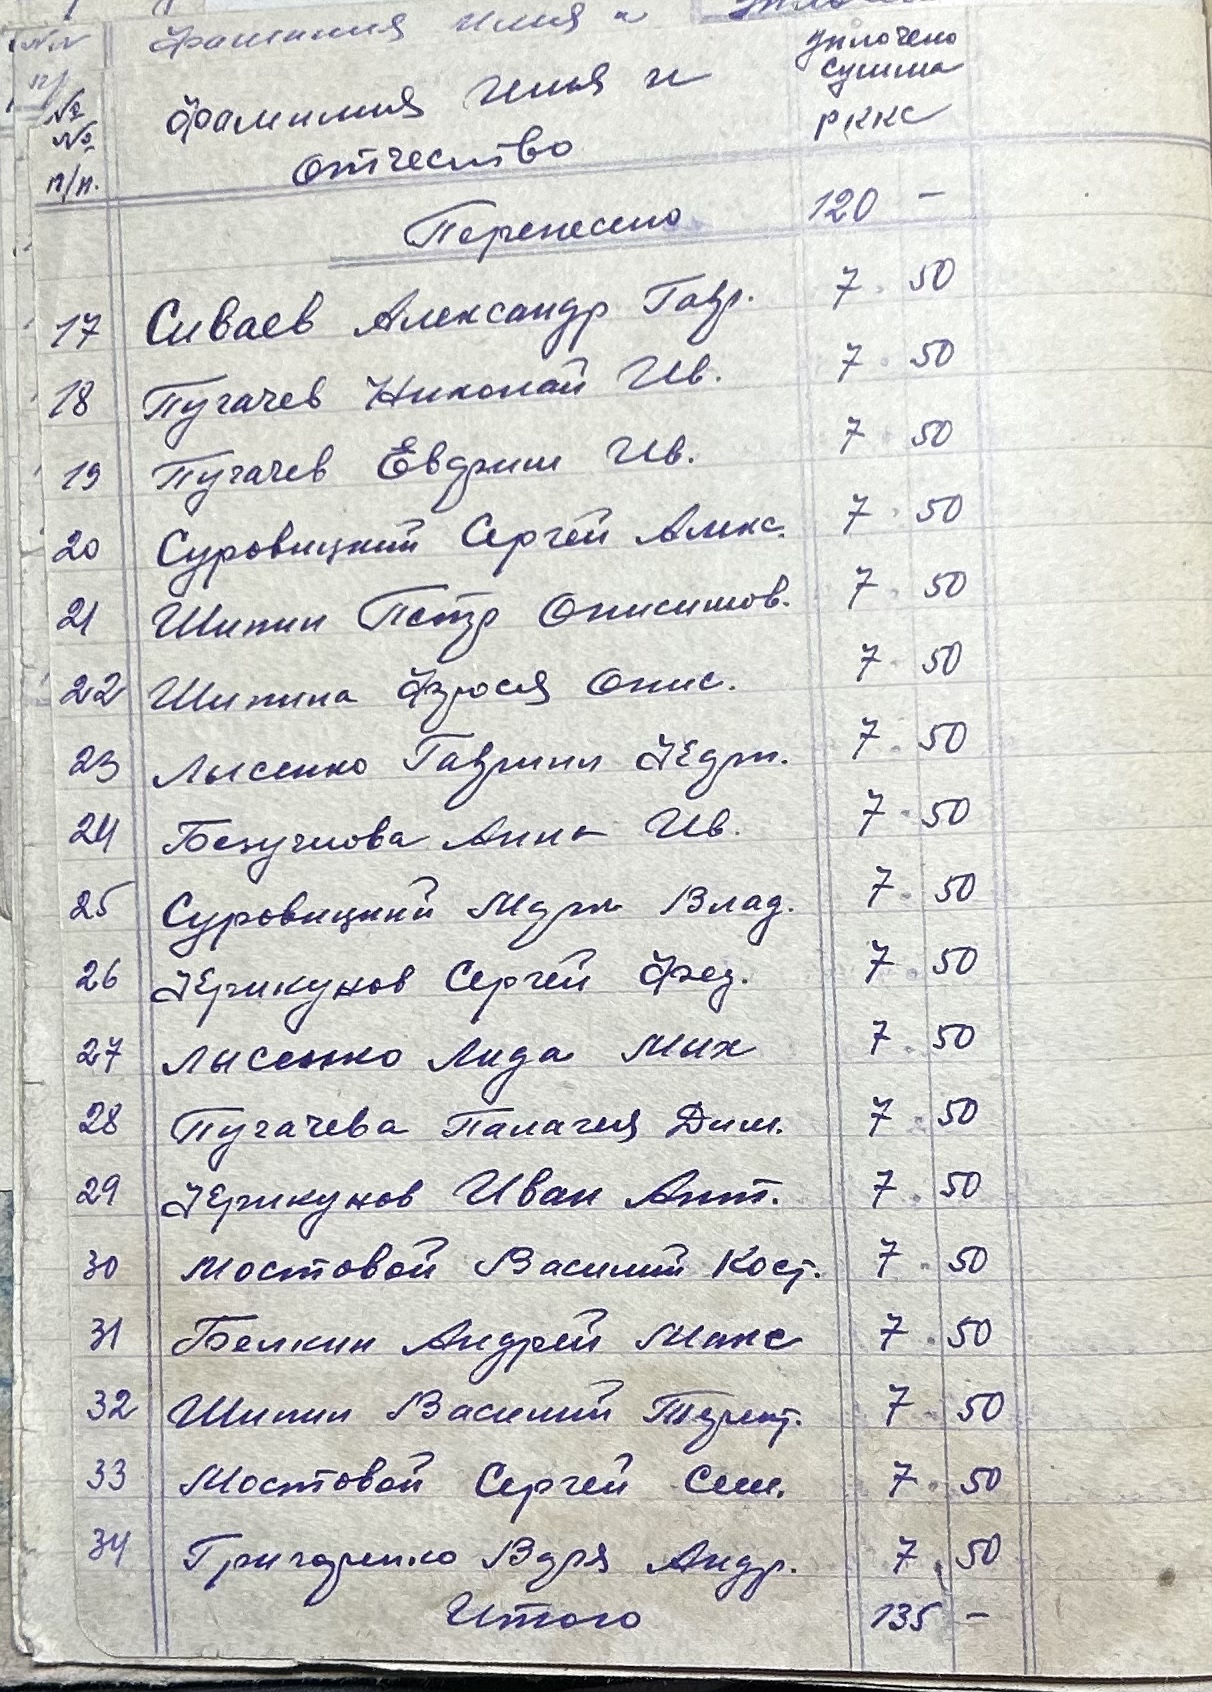 Фамилия Имя и
№№ Фамилия Имя и уплочено
п/п. Отчество сумма
РККС
Перенесено 120 –
17 Сиваев Александр Гавр. 7. 50
18 Пугачев Николай Ив. 7. 50
19 Пугачев Ефрим Ив. 7. 50
20 Суровицкий Сергей Алекс. 7. 50
21 Шипин Петр Онисимов. 7. 50
22 Шипина Фрося Онис. 7. 50
23 Лысенко Гаврил 7. 50
24 Анна Ив. 7. 50
25 Суровицкий Марк Влад. 7. 50
26 Сергей Фед. 7. 50
27 Лысенко Лида Мих 7. 50
28 Пугачева Палагея Дим. 7. 50
29 Иван Ант. 7. 50
30 Мостовой Василий Кост. 7. 50
31 Белкин Андрей Макс 7. 50
32 Шипин Василий 7. 50
33 Мостовой Сергей Сем. 7. 50
34 Григоренко Варя Андр. 7. 50
Итого 135 –